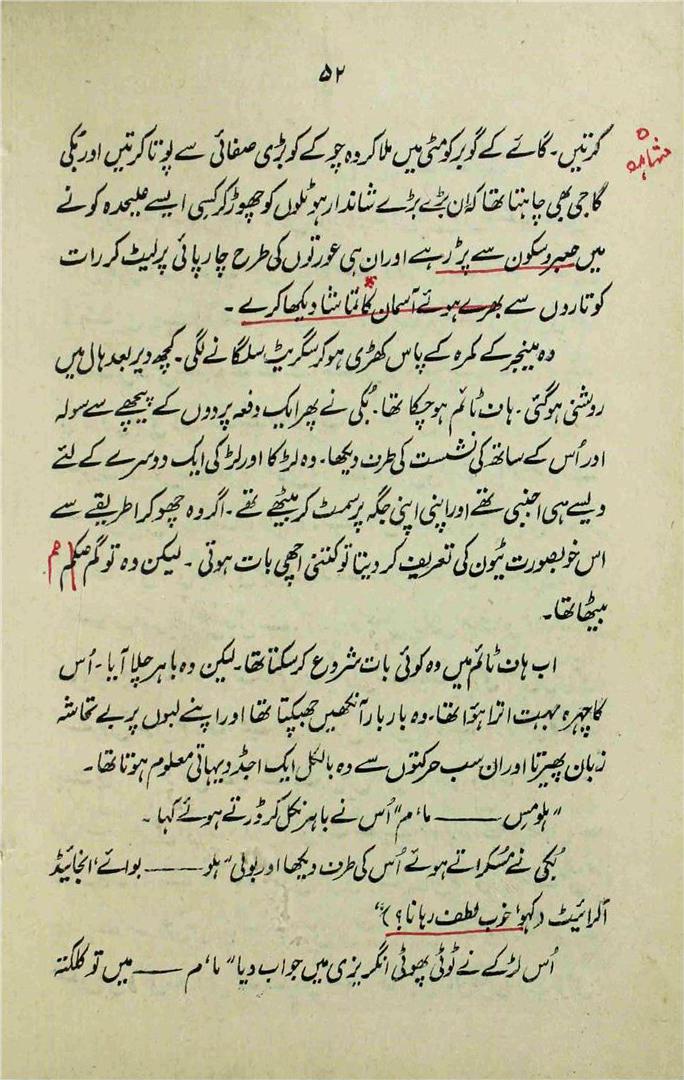 ۵۲
گرتیں۔ گائے کے گوبر کو مٹی میں ملا کر وہ چوکے کو بڑی صفائی سے پوتا کرتیں اور بُکی
کا جی بھی چاہتا تھا کہ اِن بڑے بڑے شاندار ہوٹلوں کو چھوڑ کر کسی ایسے علیحدہ کونے
میں صبر و سکون سے پڑ رہے اور ان ہی عورتوں کی طرح چارپائی پر لیٹ کر رات
کو تاروں سے بھرے ہوئے آسمان کا تماشا دیکھا کرے۔
وہ مینجر کے کمرہ کے پاس کھڑی ہو کر سگریٹ سلگانے لگی۔ کچھ دیر بعد ہال میں
روشنی ہو گئی۔ ہاف ٹائم ہو چکا تھا۔ بُکی نے پھر ایک دفعہ پردوں کے پیچھے سے سولہ
اور اُس کے ساتھ کی نشست کی طرف دیکھا۔ وہ لڑکا اور لڑکی ایک دوسرے کے لئے
ویسے ہی اجنبی تھے اور اپنی اپنی جگہ پر سمٹ کر بیٹھے تھے۔ اگر وہ چھوکرا طریقے سے
اس خوبصورت ٹیون کی تعریف کر دیتا تو کتنی اچھی بات ہوتی۔ لیکن وہ تو گم صُم
بیٹھا تھا۔
اب ہاف ٹائم میں وہ کوئی بات شروع کر سکتا تھا۔ لیکن وہ باہر چلا آیا۔ اُس
کا چہرہ بہت اترا ہوا تھا۔ وہ بار بار آنکھیں جھپکتا تھا اور اپنے لبوں پر بے تحاشہ
زبان پھیرتا اور ان سب حرکتوں سے وہ بالکل ایک اجڈ دیہاتی معلوم ہوتا تھا۔
"ہلو مِس ——— ما'م" اُس نے باہر نکل کر دوڑتے ہوئے کہا۔
بُکی نے مسکراتے ہوئے اُس کی طرف دیکھا اور بولی "ہلو ——— بوائے' انجائیڈ
آلرائیٹ (کہو' خوب لطف رہا نا؟)"
اُس لڑکے نے ٹوٹی پھوٹی انگریزی میں جواب دیا "ما'م ——— میں تو کلکتہ